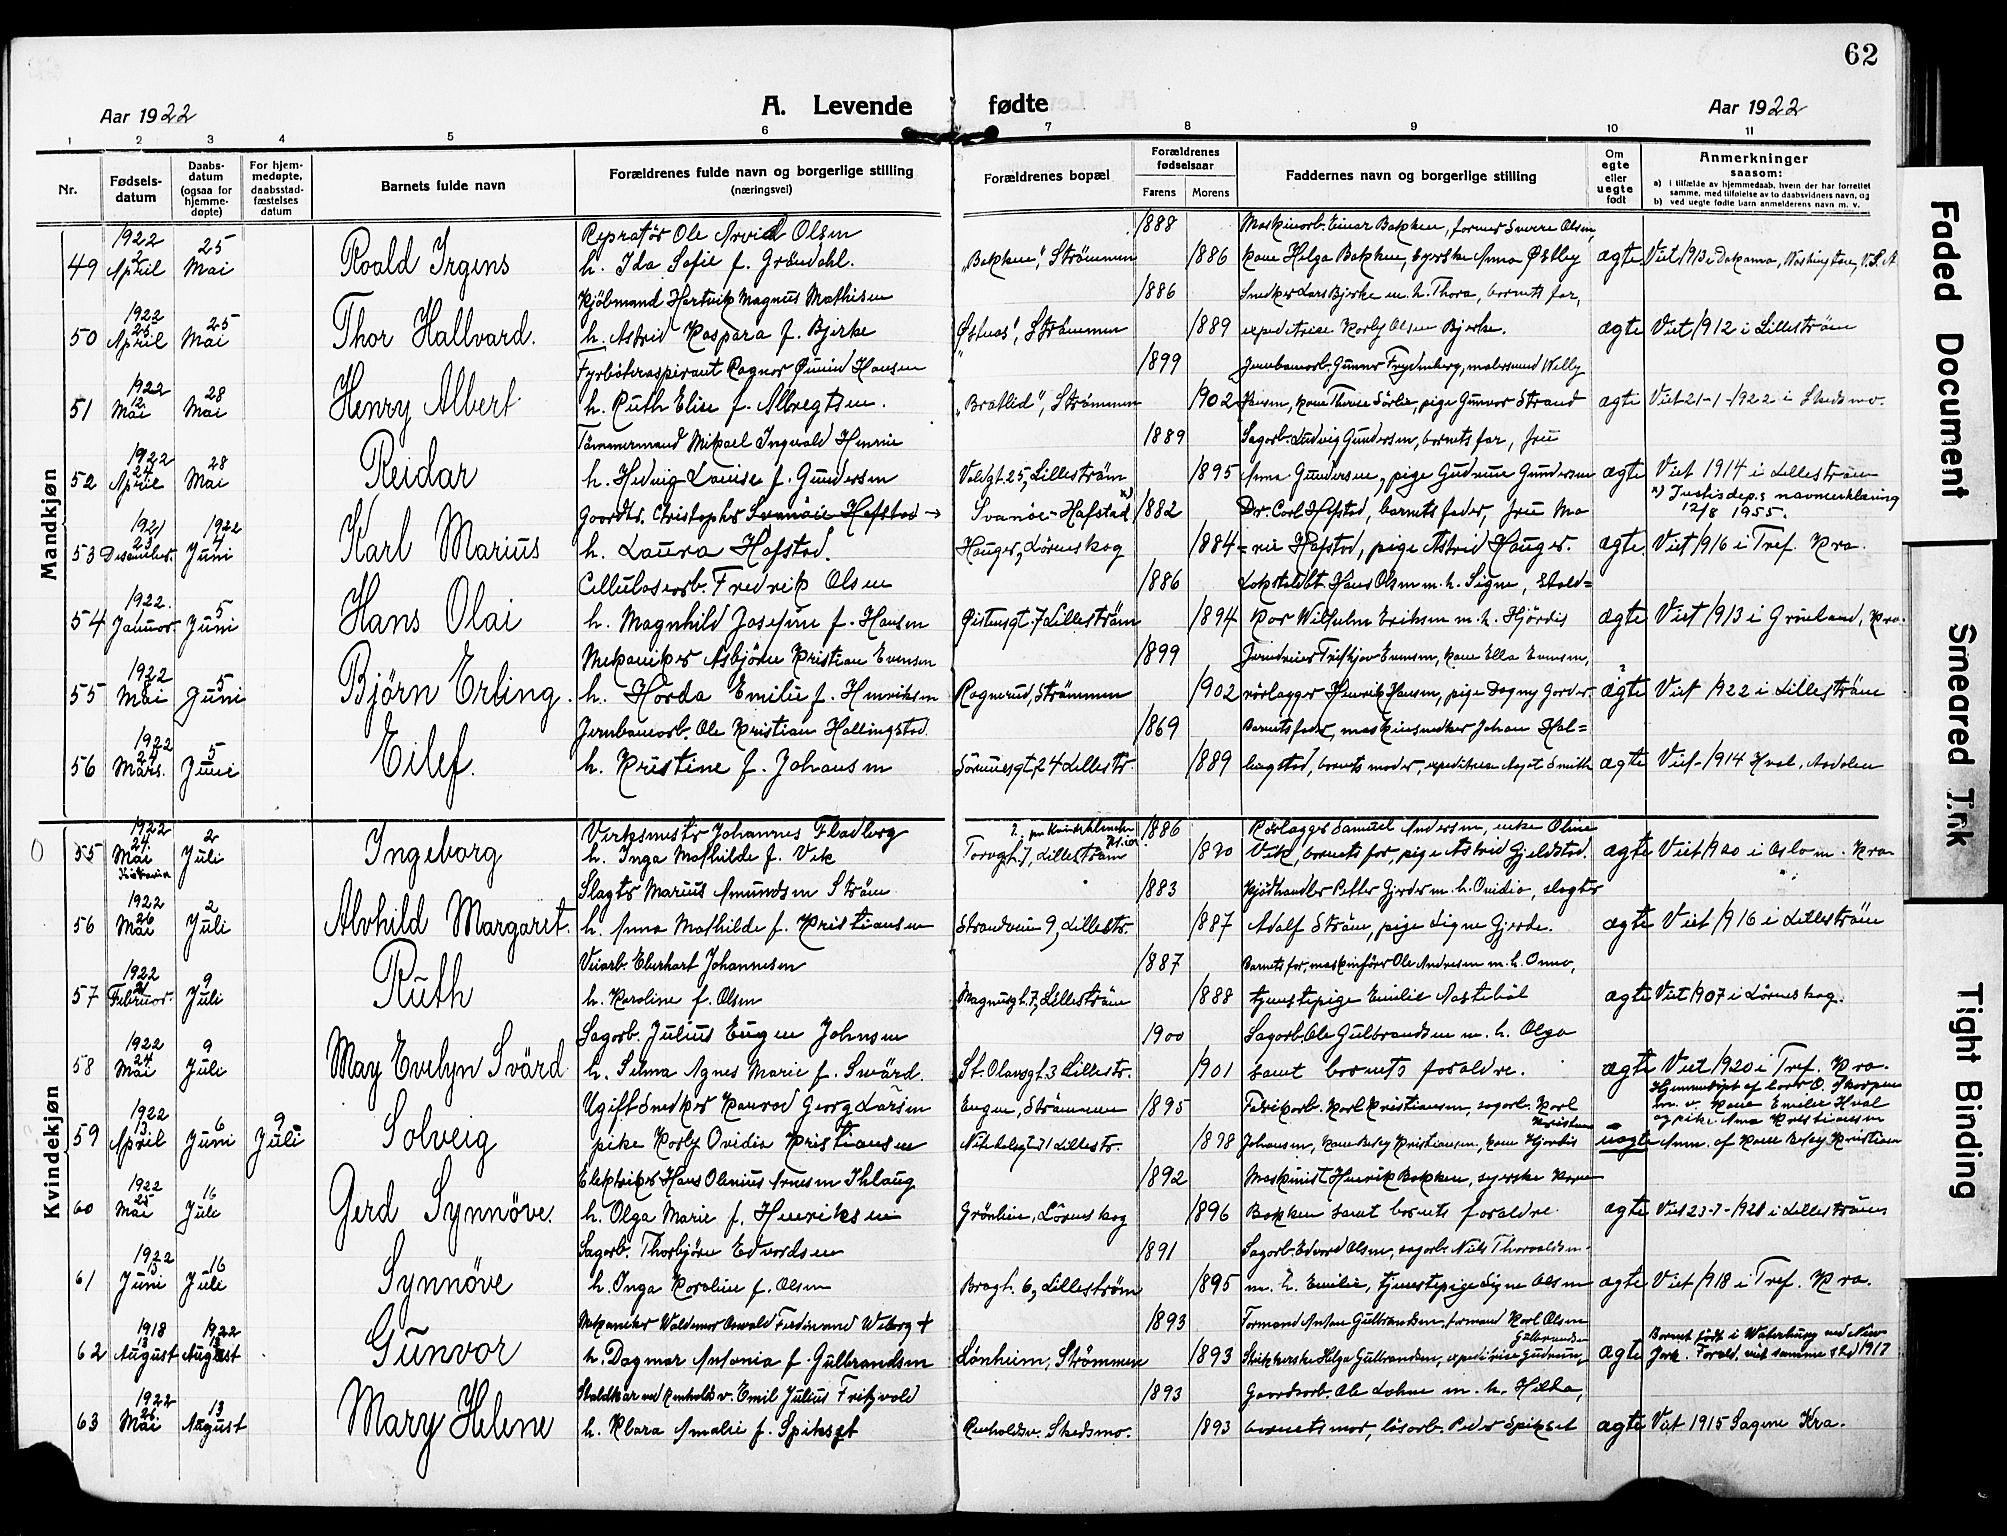 62
Aar 1922
A. Levende fødte
Aar 1922
1 2 3 4 5 6 7 8 9 10 11
Nr.
Fødsels-datum
Daabs-datum (ogsaa for hjemme-døpte)
For hjem-medøpte, daabsstad-fæstelses datum
Barnets fulde navn
Forældrenes fulde navn og borgerlige stilling (næringsvei)
Forældrenes bopæl
Forældrenes fødselsaar
Farens Morens
Faddernes navn og borgerlige stilling
Om egte eller uegte født
Anmerkninger saasom:
a) i tilfælde av hjemmedaab, hvem der har forrettet samme, med tilføielse av to daabsvidners navn, og
b) ved uegte fødte barn anmelderens navn m. v.
Mandkjøn
1922 25 Ole Arvid Olsen 1888 Maskinarb. Einar Bakken, former Sverre Olsen,
49 April Mai Roald Irgens h. Ida Sofie f. Gröndahl. "Bakken", Strömmen 1886 kone Helga Bakken, syerske Anna Østby ægte Viet 1913 i Takoma, Washington, U.S.A
1922 Kjöbmand Hartvik Magnus Mathisen 1886 Snedker Lars Bjerke m. h. Thora, barnets far,
50 25 April 25 Mai Thor Hallvard. h. Astrid Kaspara f. Bjerke Strömmen 1889 Karly Olsen Bjerke. ægte Viet 1912 i Lilleström
1922 Fyrböteraspirant Ragnar Hansen 1899 Jernbanearb. Gunnar Frydenberg, Willy
51 2 Mai 28 Mai Henry Albert h. Ruth Elise f. Albregtsen. "Bratlid", Strömmen 1902 Hansen, kone Therese Sörlie, pige Gunvor Strand ægte Viet 21-1-1922 i Skedsmo.
1922 Tömmermand Mikael Ingvald Henrie 1889 Sagarb. Ludvig Gundersen, barnets far, fru
52 24 April 28 Mai Reidar h. Hedvig Louise f. Gundersen Voldgt. 25, Lilleström 1895 Anna Gundersen, pige Gudrun Gundersen ægte Viet 1914 i Lilleström
x) Justisdep.s navneerklæring 12/8 1955.
1921 1922 Gaardbr. Christopher Svanöe Hafstad → Svanöe-Hafstad x) 1882 Dr. Carl Hafstad, barnets fader, fru Ma
53 23 Desember. 4 Juni Karl Marius h. Laura Hafstad. Hauger, Lörenskog 1884 =rie Hafstad, pige Astrid Hauger. ægte Viet 1916 i Tref. Kra.
1922. Cellulosearb. Fredrik Olsen 1886 Hans Olsen m. h. Signe, Stald=
54 Januar. 5 Juni Hans Olai h. Magnhild Josefine f. Hansen Øistensgt. 7 Lilleström 1894 kar Wilhelm Eriksen m. h. Hjördis ægte Viet 1913 i Grönland, Kra.
1922 Mekaniker Asbjörn Kristian Evensen 1899 Jerndreier Fritjov Evensen, kone Ella Evensen,
55 Mai 5 Juni Björn Erling. h. Hörda Emilie f. Henriksen Ragnerud, Strömmen 1902 rörlægger Henrik Hansen, pige Dagny Gorder ægte Viet 1922 i Lilleström
1922 Jernbanearb. Ole Kristian Hallingstad 1869 Barnets fader, maskinsnedker Johan Hal=
56 Mars. 5 Juni Eilef. h. Kristine f. Johansen Sörumsgt. 24 Lillestr. 1889 lingstad, barnets moder, Aagot Smith ægte Viet 1914 Hval, Aadalen
Kvindekjøn
1922 Verksmester Johannes Fladborg 1886 Rörlægger Samuel Andersen, enke Oline
55 24 Mai 2 Juli Ingeborg h. Inga Mathilde f. Vik Torvgt. 7, Lilleström Vik, barnets far, pige Astrid Gjeldstad. ægte Viet 1920 i Oslo m. Kra
1922 Slagter Marius Amundsen Ström 1883 Kjödhandler Petter Gjerder m. h. Ovidia, slagter
56 26 Mai 2 Juli Alvhild Margaret. h. Anna Mathilde f. Kristiansen Strandveien 9, Lillestr. 1887 Adolf Ström, pige Signe Gjerde. ægte Viet 1916 i Lilleström
1922 Veiarb. Eberhart Johannesen 1887 Barnets far, maskinförer Ole Andresen m. h. Anna,
57 21 Februar. 9 Juli Ruth h. Karoline f. Olsen Magnusgt. 7, Lilleström 1888 tjenestepige Emilie Aastebøl ægte Viet 1907 i Lörenskog.
1922 Sagarb. Julius Eugen Johnsen 1900 Sagarb. Ole Gulbrandsen m. h. Olga
58 24 Mai 9 Juli May Evelyn Svärd h. Selma Agnes Marie f. Svärd. St. Olavsgt. 3 Lillestr. 1901 samt barnets forældre. ægte Viet 1920 i Tref. Kra.
1922 Ugift Snedker Konrad Georg Larsen Engen, Strömmen 1895 Fabrikarb. Karl Kristiansen, sagarb. Karl Kristian
59 13 April 6 Juni 9 Juli Solveig pike Karly Ovidia Kristiansen 1898 Johansen, kone Betsy Kristiansen, kone Hjördis uægte Anm. af kone Betsy Kristian
Hjemmedöpt af Emilie Hval og pike Anna Kristiansen
1922 Elektriker Hans Olenius Arnesen Ihlaug 1892 Maskinist Henrik Bakken, syerske
60 25 Mai 16 Juli Gerd Synnöve. h. Olga Marie f. Henriksen Grönlien, Lörenskog 1896 Bakken samt barnets forældre ægte Viet 23-7-1921 i Lilleström
1922 Sagarb. Thorbjörn Edvardsen 1891 Sagarb. Edvard Olsen, sagarb. Nils Thorvaldsen
61 Juni 16 Juli Synnöve h. Inga Karoline f. Olsen Bragt. 6, Lilleström 1895 m. h. Emilie, tjenestepige Signe Olsen ægte Viet 1918 i Tref. Kra.
1918 1922 Mekaniker Waldemar Oswald Ferdinand Weberg + 1893 Formand Anton Gulbrandsen, formand Karl Olsen
62 13 August August Gunvor h. Dagmar Antonia f. Gulbrandsen Lönheim, Strömmen 1893 Strikkerske Helga Gulbrandsen, Gudrun Gulbrandsen, ægte Barnet födt i Waterbury ved New York. Foræld. viet samme sted 1917
1922 Staldkar ved Emil Julius Fritzvold 1893 Gaardsarb. Ole Lohne m. h. Hilda,
63 26 Mai 13 August Mary Helene h. Klara Amalie f. Spikset Skedsmo. 1893 barnets mor, lösarb. Peder Spikset ægte Viet 1915 Sagene Kra.
Faded Document
Smeared Ink
Tight Binding